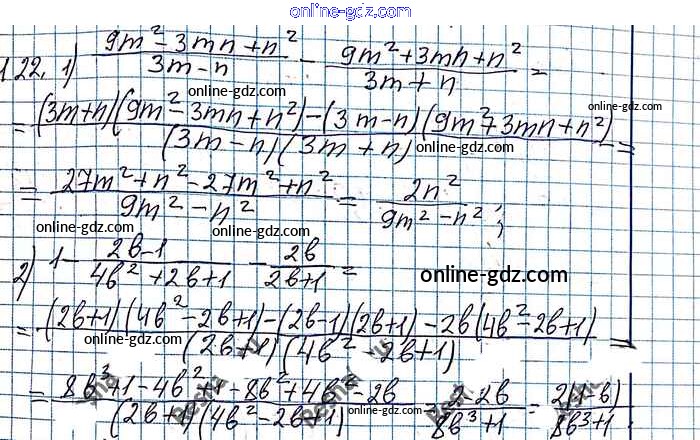 online-gdz.com
1.22. 1) (9m² - 3mn + n²)/(3m - n) - (9m² + 3mn + n²)/(3m + n) =
online-gdz.com online-gdz.com
= ((3m + n)(9m² - 3mn + n²) - (3m - n)(9m² + 3mn + n²))/((3m - n)(3m + n)) =
online-gdz.com
= (27m² + n² - 27m² + n²)/(9m² - n²) = 2n²/(9m² - n²);
online-gdz.com online-gdz.com
2) 1 - (2b - 1)/(4b² + 2b + 1) - 2b/(2b + 1) =
online-gdz.com online-gdz.com
= ((2b + 1)(4b² - 2b + 1) - (2b - 1)(2b + 1) - 2b(4b² - 2b + 1))/((2b + 1)(4b² - 2b + 1)) =
online-gdz.com
= (8b³ + 1 - 4b² + 1 - 8b² + 4b² - 2b)/((2b + 1)(4b² - 2b + 1)) = (2 - 2b)/(8b³ + 1) = 2(1 - b)/(8b³ + 1).
online-gdz.com online-gdz.com
online-gdz.com